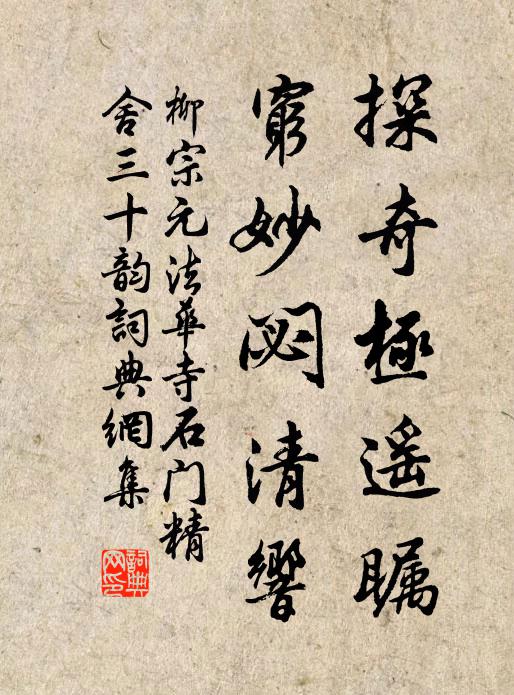 探奇極遥瞩
窮妙閟清響
柳宗元法華寺石门精
舍三十韵詞典網集
詞典
网印